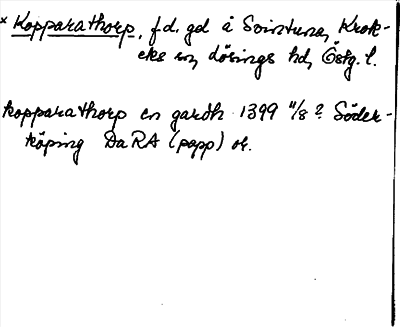 * Kopparathorp, f.d. gd å Svintuna, Krok-
eks sn, Lösings hd, Östg. l.
kopparathorp en gardh 1399 11/8? Söder-
köping DaRA (papp) or.